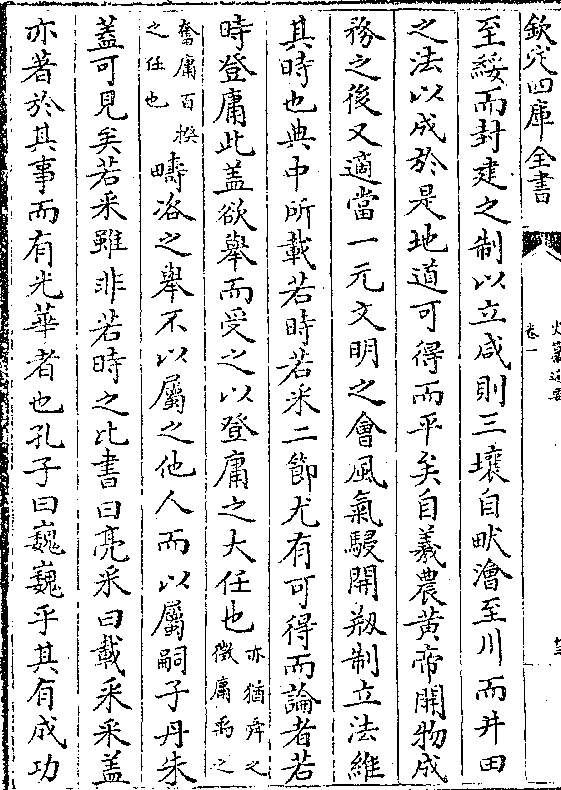 欽定四庫全書
卷一
至綏而封建之制以立咸則三壤自畎澮至川而井田
之法以成於是地道可得而平矣自羲農黃帝開物成
務之後又適當一元文明之會風氣駸開刱制立法維
其時也典中所載若時若采二節尤有可得而論者若
時登庸此蓋欲舉而受之以登庸之大任也亦猶舜之徵庸禹之
奮庸百揆之任也疇咨之舉不以屬之他人而以屬嗣子丹朱
蓋可見矣若采雖非若時之比書曰亮采曰載采采蓋
亦著於其事而有光華者也孔子曰巍巍乎其有成功